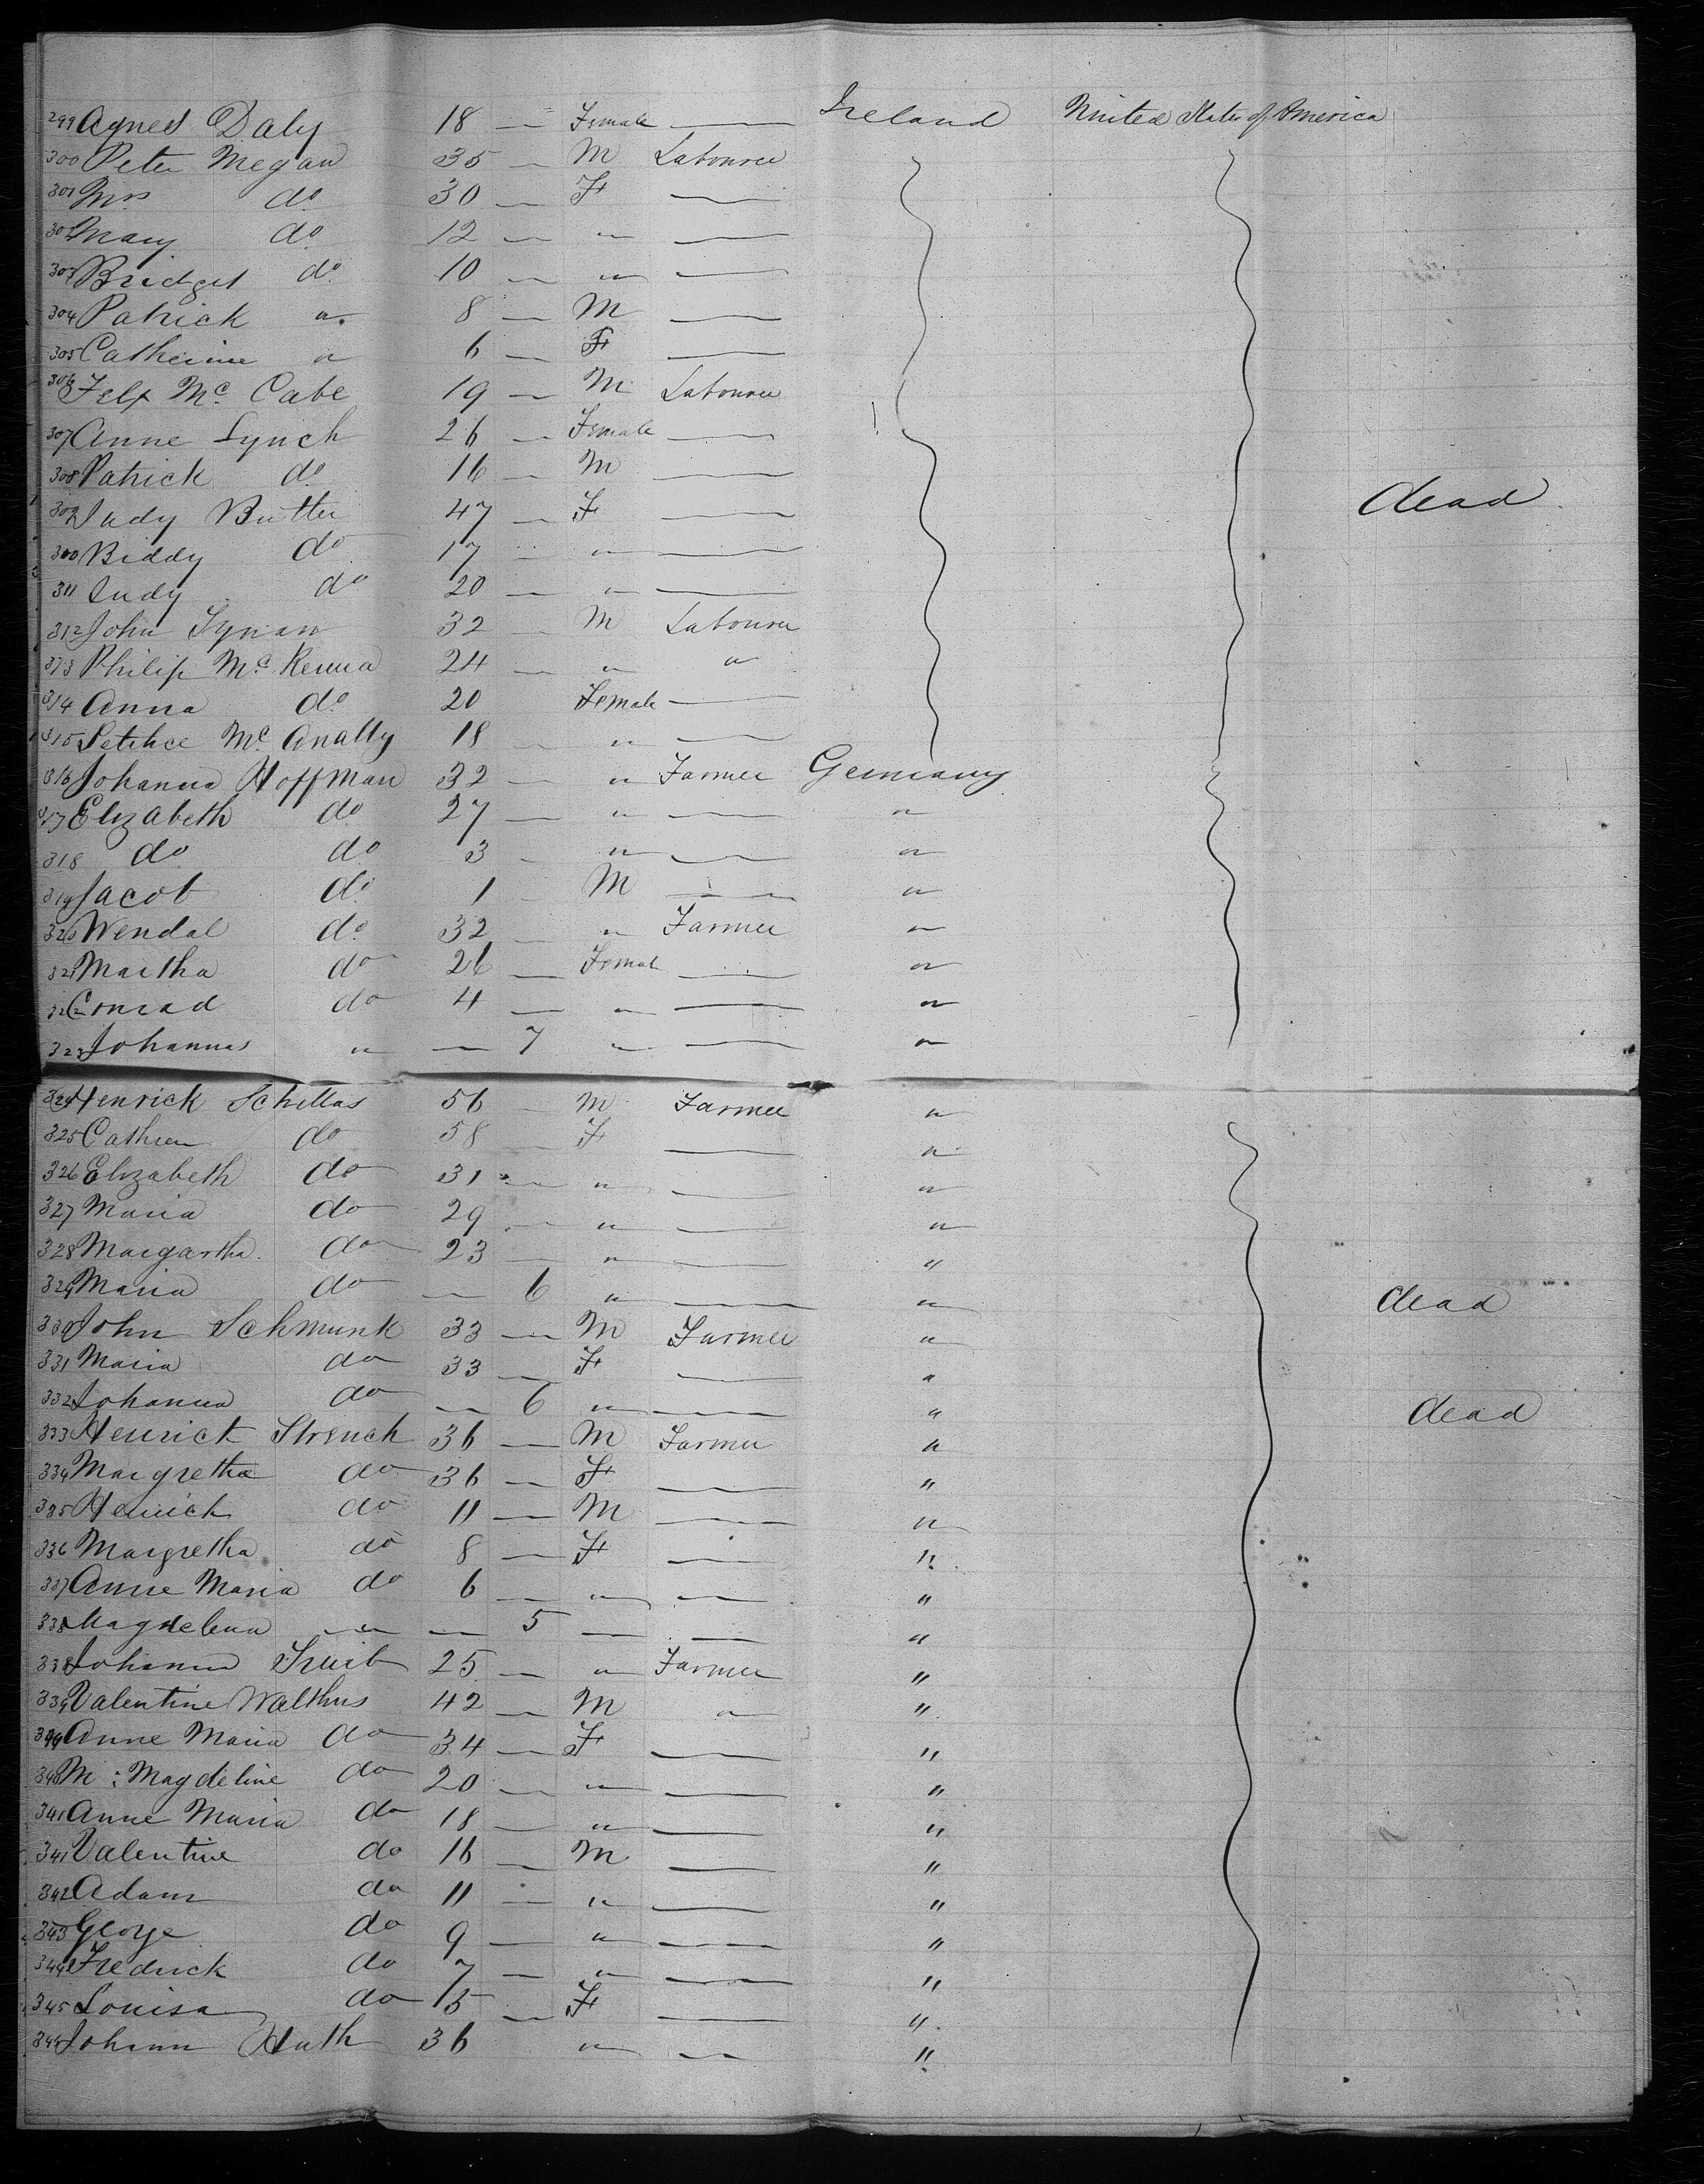 299 Agnes Daly 18 — Female — Ireland United States of America
300 Peter Megan 35 — M Labourer
301 Mrs do 30 — F —
302 Mary do 12 — " —
303 Bridget do 10 — " —
304 Patrick " 8 — M —
305 Catherine " 6 — F —
306 Felx Mc Cabe 19 — M Labourer
307 Anne Lynch 26 — Female —
308 Patrick do 16 — M —
309 Judy Butter 47 — F — dead
300 Biddy do 17 — " —
311 Judy do 20 — " —
312 John Synan 32 — M Labourer
313 Philip Mc Kenna 24 — " "
314 Anna do 20 Female —
315 Mc Anally 18 — " —
316 Johanna Hoffman 32 — " Farmer Germany
317 Elizabeth do 27 — " — "
318 do do 3 — " — "
319 Jacob do 1 — M — "
320 Wendal do 32 — " Farmer "
321 Martha do 26 — Female — "
322 Conrad do 4 — " — "
323 Johannas " — 7 " — "
324 Henrick Schillas 56 — M Farmer "
325 Cathren do 58 — F — "
326 Elizabeth do 31 — " — "
327 Maria do 29 — " — "
328 Margartha do 23 — " — "
329 Maria do — 6 " — " dead
330 John Schmunk 33 — M Farmer "
331 Maria do 33 — F — "
332 Johanna do — 6 " — " dead
333 Henrick Strench 36 — M Farmer "
334 Margretha do 36 — F — "
335 Henrick do 11 — M — "
336 Margretha do 8 — F — "
337 Anne Maria do 6 — " — "
338 Magdelena " — 5 — — "
338 Johanna 25 — " Farmer "
339 Valentine Walthus 42 — M " "
Anne Maria do 34 — F — "
340 M: Magdeline do 20 — " — "
341 Anne Maria do 18 — " — "
341 Valentine do 16 — M — "
342 Adam do 11 — " — "
343 George do 9 — " — "
344 Fredrick do 7 — " — "
345 Louisa do 15 — F — "
344 Johann Huth 36 " — "